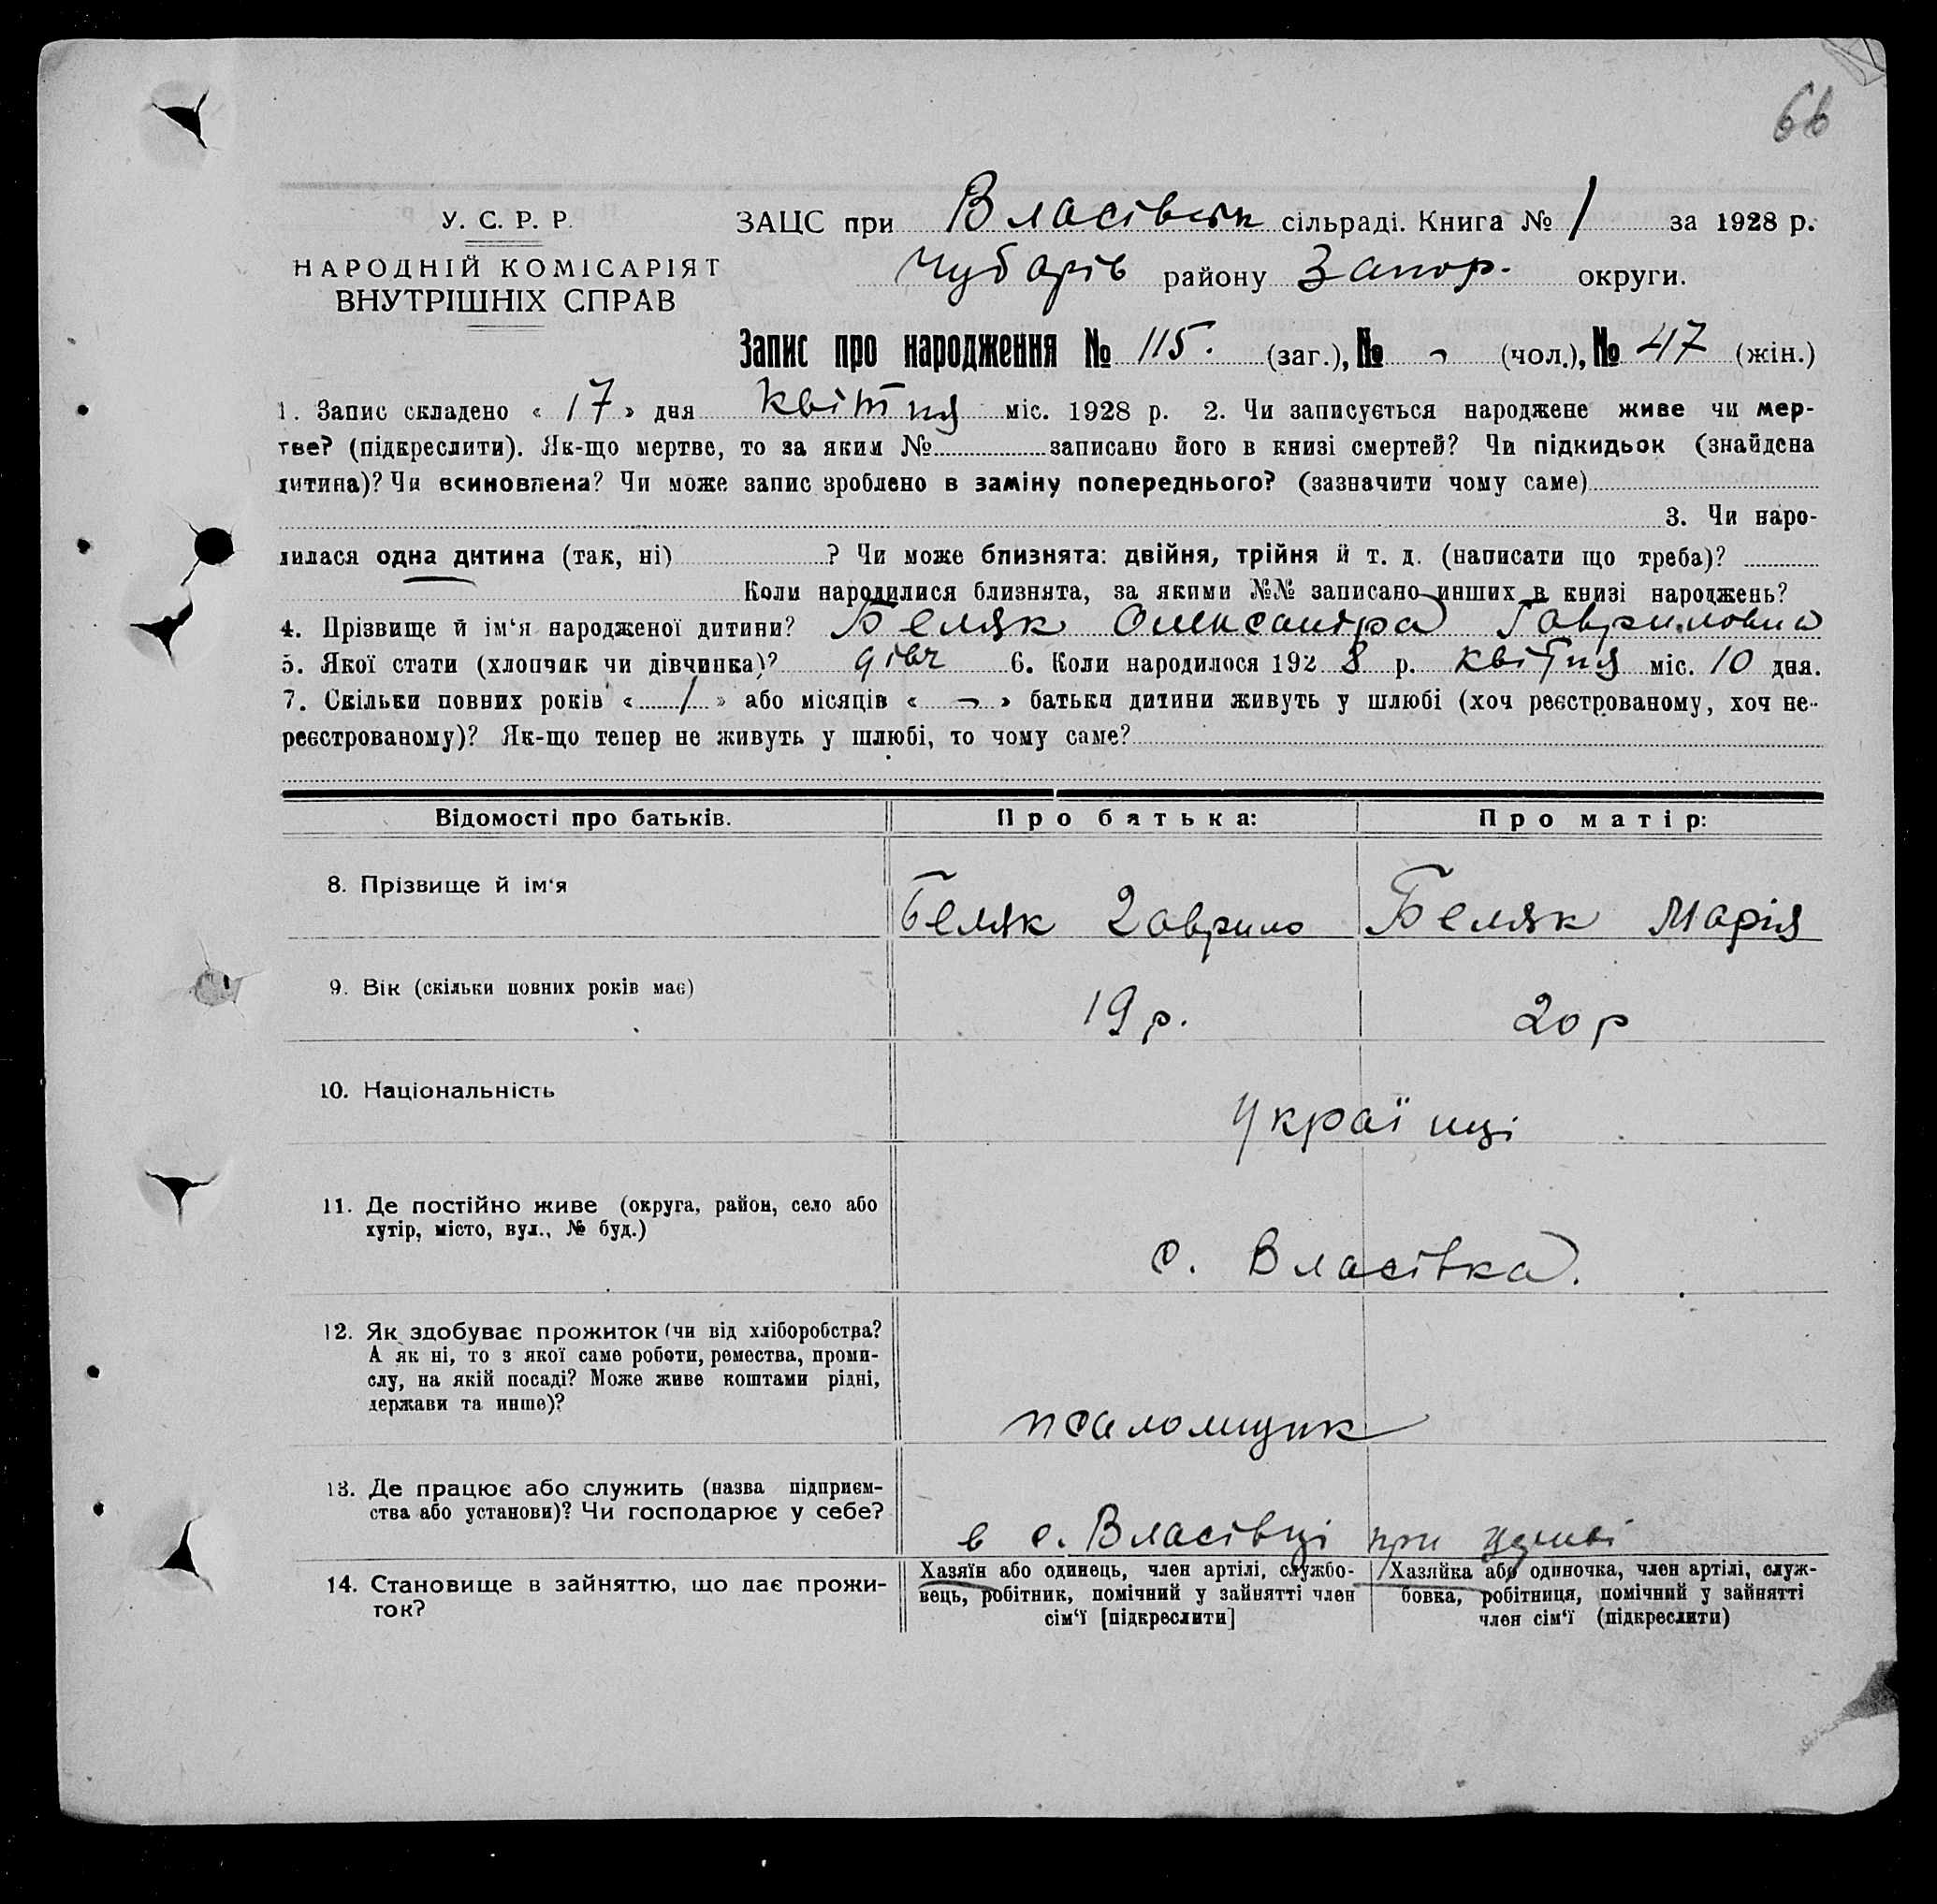 66
У. С. Р. Р.
НАРОДНІЙ КОМІСАРІЯТ
ВНУТРІШНІХ СПРАВ
ЗАЦС при Власівськ сільраді. Книга № 1 за 1928 р.
Чубарів району Запор. округи.
Запис про народження № 115. (заг.), № ¬ (чол.), № 47 (жін.)
1. Запис складено « 17 » дня квітня міс. 1928 р. 2. Чи записується народжене живе чи мер-
тве? (підкреслити). Як-що мертве, то за яким № записано його в книзі смертей? Чи підкидьок (знайдена
дитина)? Чи всиновлена? Чи може запис зроблено в заміну попереднього? (зазначити чому саме)
3. Чи наро-
дилася одна дитина (так, ні) ? Чи може близнята: двійня, трійня й т. д. (написати що треба)?
Коли народилися близнята, за якими №№ записано инших в книзі народжень?
4. Прізвище й ім‘я народженої дитини? Беляк Олександра Гавриловна
5. Якої стати (хлопчик чи дівчинка)? дівч 6. Коли народилося 1928 р. квітня міс. 10 дня.
7. Скільки повних років « 1 » або місяців « ¬ » батьки дитини живуть у шлюбі (хоч реєстрованому, хоч не-
реєстрованому)? Як-що тепер не живуть у шлюбі, то чому саме?
Відомості про батьків. Про батька: Про матір:
8. Прізвище й ім‘я Беляк Гаврило Беляк Марія
9. Вік (скільки повних років має) 19 р. 20 р
10. Національність Українці
11. Де постійно живе (округа, район, село або
хутір, місто, вул., № буд.)
с. Власівка.
12. Як здобуває прожиток (чи від хліборобства?
А як ні, то з якої саме роботи, ремества, проми-
слу, на якій посаді? Може живе коштами рідні,
держави та инше)?
псаломщик
13. Де працює або служить (назва підприєм-
ства або установи)? Чи господарює у себе?
в с. Власівці при церкві
14. Становище в зайняттю, що дає прожи-
ток?
Хазяїн або одинець, член артілі, службо-
вець, робітник, помічний у зайнятті член
сім‘ї [підкреслити]
Хазяйка або одиночка, член артілі, служ-
бовка, робітниця, помічний у зайнятті
член сім‘ї (підкреслити)